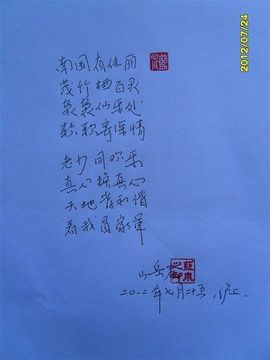 南国有佳丽
茂竹栖百灵
袅袅仙乐处
款款寄深情
老少同欢乐
真心换真心
天地皆和谐
春我回家军
山岳
二〇一二年七月二十五,沪上.
2012/07/24